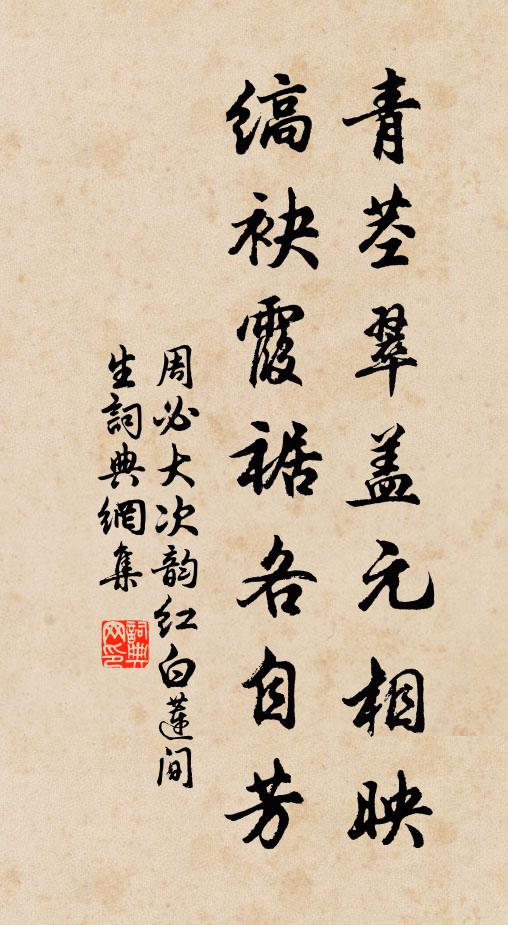 青茎翠盖元相映
缟袂霞裾各自芳
周必大次韵红白莲间
生詞典網集
詞典網印